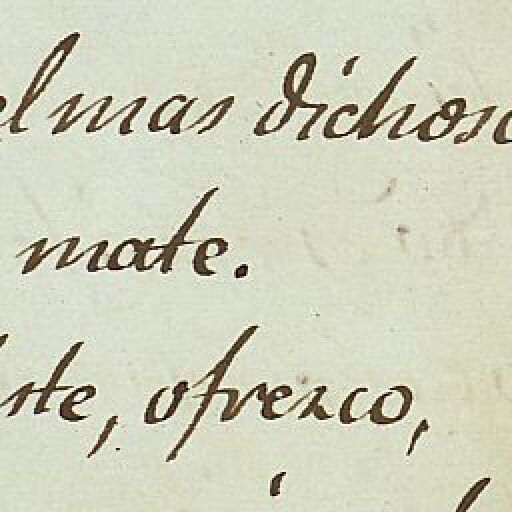 el mas dichoso
mate.
ste, ofrezco,